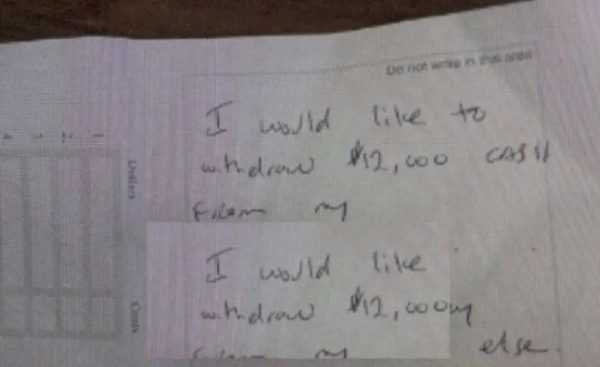 Do not write in this area
I would like to
withdraw $12,000 CASH
From my
I would like
withdraw $12,000my
my else.
Dollars
Cents